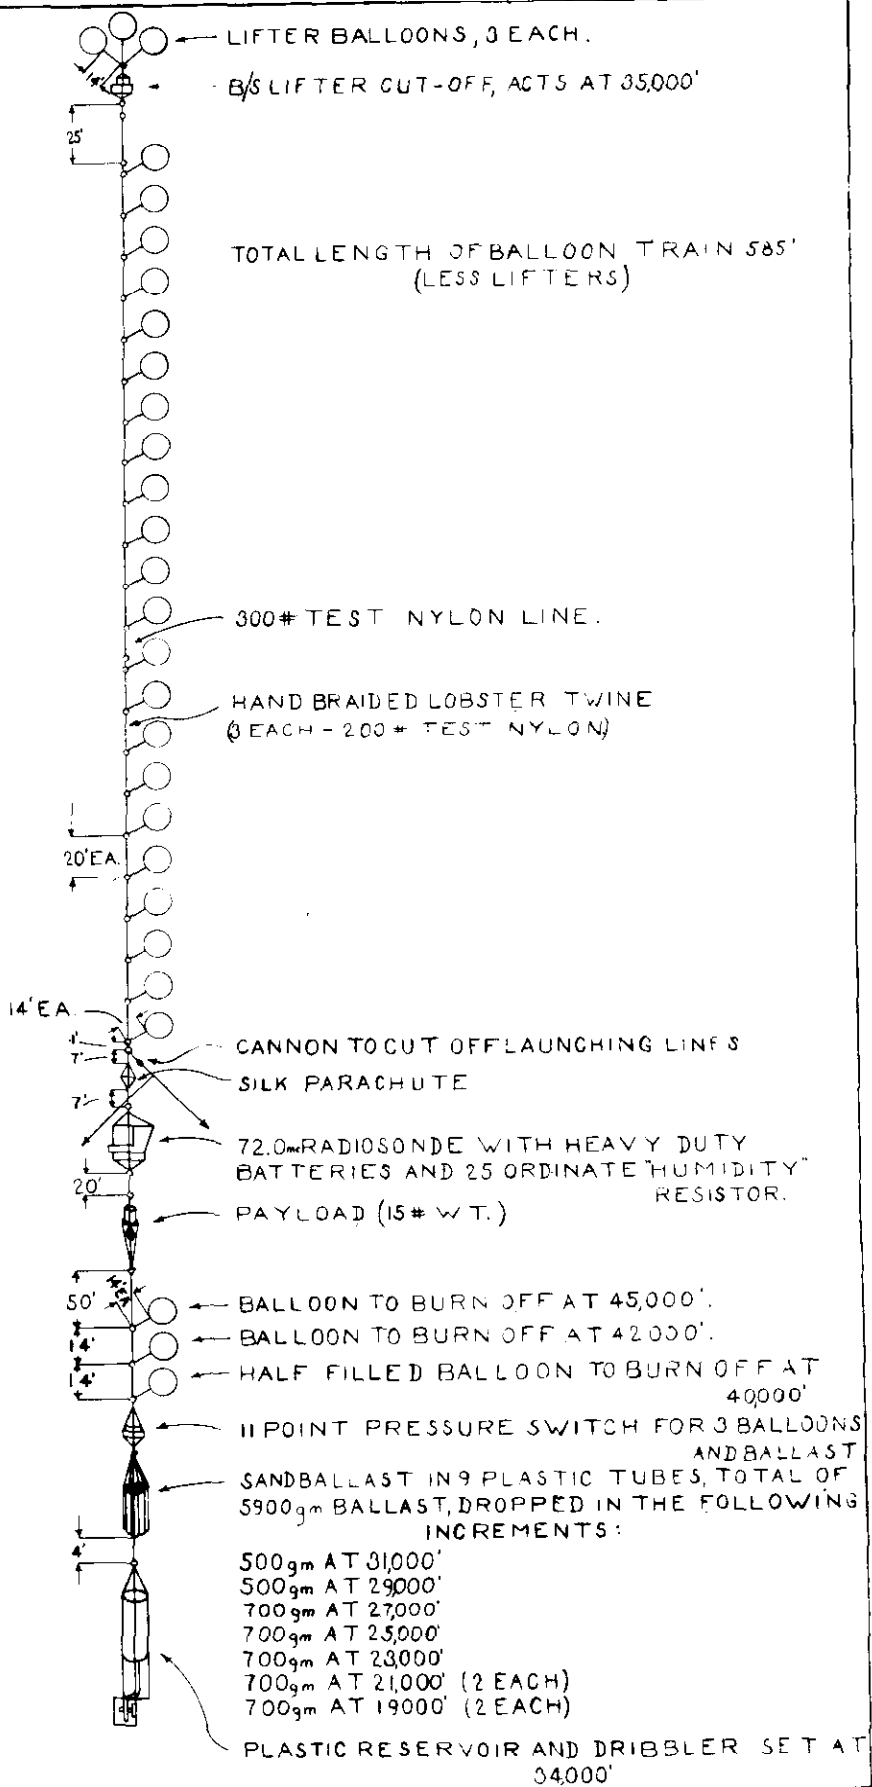 LIFTER BALLOONS, 3 EACH.
14'
B/S LIFTER CUT-OFF, ACTS AT 35,000'
25'
TOTAL LENGTH OF BALLOON TRAIN 585'
(LESS LIFTERS)
300# TEST NYLON LINE.
HAND BRAIDED LOBSTER TWINE
(3 EACH - 200# TEST NYLON)
20' EA.
14' EA
CANNON TO CUT OFF LAUNCHING LINES
7'
SILK PARACHUTE
7'
72.0mc RADIOSONDE WITH HEAVY DUTY
BATTERIES AND 25 ORDINATE "HUMIDITY"
RESISTOR.
20'
PAYLOAD (15# WT.)
50'
BALLOON TO BURN OFF AT 45,000'.
14'
BALLOON TO BURN OFF AT 42000'.
14'
HALF FILLED BALLOON TO BURN OFF AT
40,000'
11 POINT PRESSURE SWITCH FOR 3 BALLOONS
AND BALLAST
SAND BALLAST IN 9 PLASTIC TUBES, TOTAL OF
5900gm BALLAST, DROPPED IN THE FOLLOWING
INCREMENTS:
4'
500gm AT 31,000'
500gm AT 29,000'
700gm AT 27,000'
700gm AT 25,000'
700gm AT 23,000'
700gm AT 21,000' (2 EACH)
700gm AT 19000' (2 EACH)
PLASTIC RESERVOIR AND DRIBBLER SET AT
34,000'